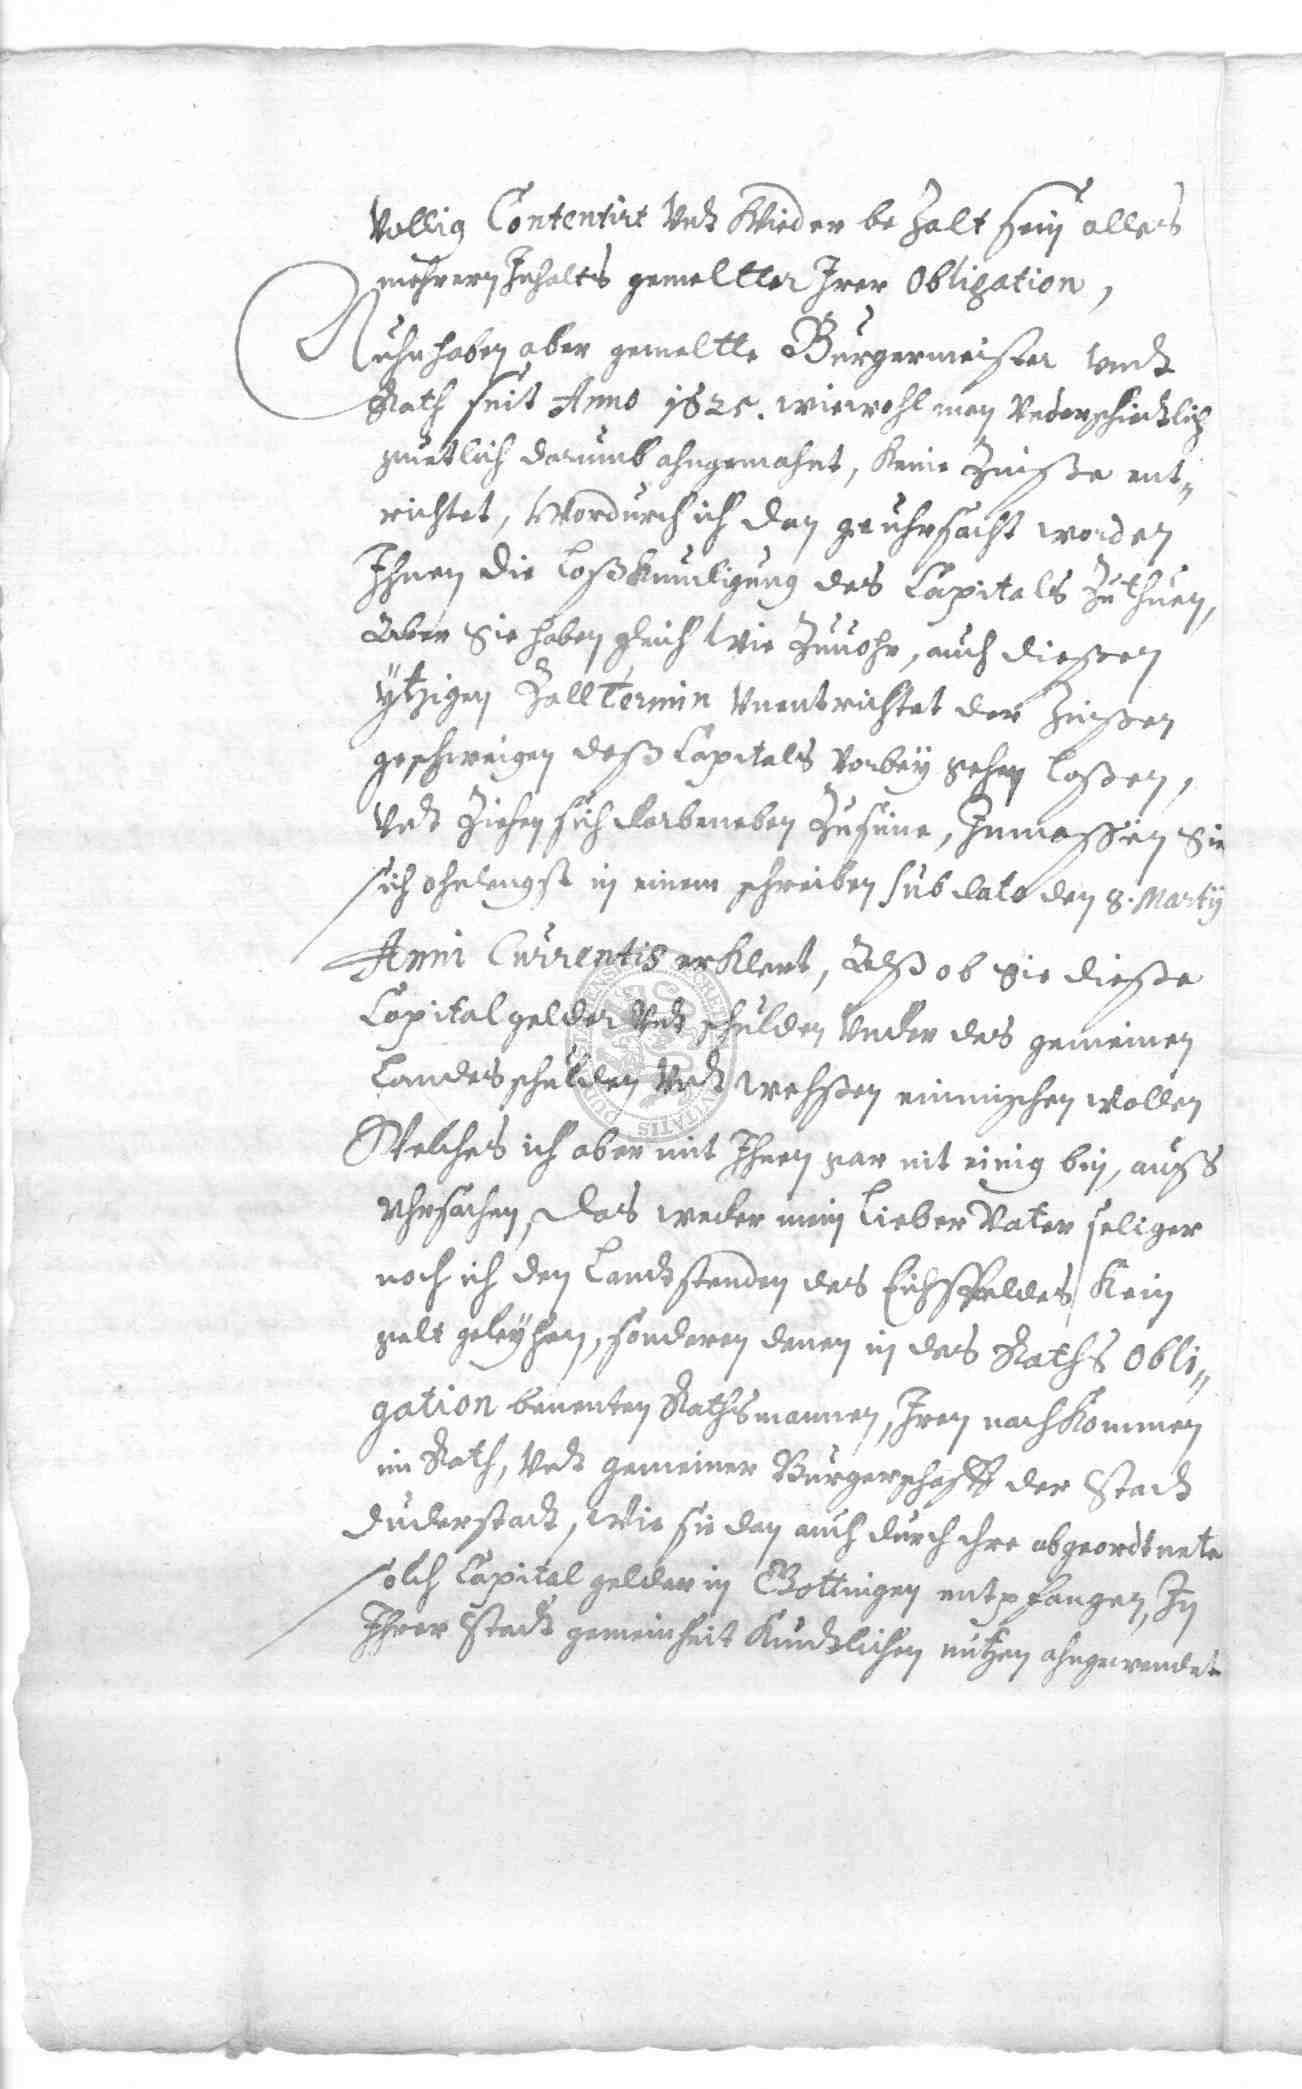 Vollig Contentirt Vndt Wieder bezalt sein alles
mehrern Inhalts gemeltter Irer Obligation,
Nuhn haben aber gemeltte Burgermeister vndt
Rath seit Anno 1625. wiewohl man Vnderschiedtlich
guetlich darumb ahngemahnt, Keine Zinße ent„
richtet, Wordurch ich dan geuhrsacht worden
Ihnen die Loßkundigung des Capitals Zuthuen,
Aber Sie haben gleich Wie Zuuohr, auch dießen
ytzigen ZallTermin Vnentrichtet der Zinßen
geschweigen deß Capitals Vorbey gehen laßen,
Vndt Ziehen sich darbeneben Zu sinne, Inmassen Sie
sich ohnlengst in einem schreiben sub dato den 8. Martij
Anni Currentis erklert, Alß ob Sie dieße
Capital gelder Vndt schulden Vnder des gemeinen
Landes schulden Vndt weßen einmischen wollen
Welches ich aber mit Ihnen gar nit einig bin, auß
Vhrsachen, Das weder mein Lieber Vater seliger
noch ich den Landtstenden des Eichsfeldes Kein
gelt geleyhen, sonderen denen in des Raths Obli„
gation benenten Rathsmannen, Iren nachkommen
im Rath, Vndt gemeiner Burgerschafft der Stadt
Duderstadt, Wie sie dan auch durch ihre abgeordtnete
solch Capital gelder in Gottingen entpfangen, In
Ihrer Stadt gemeinheit Kundtlichen nutzen ahngewendet